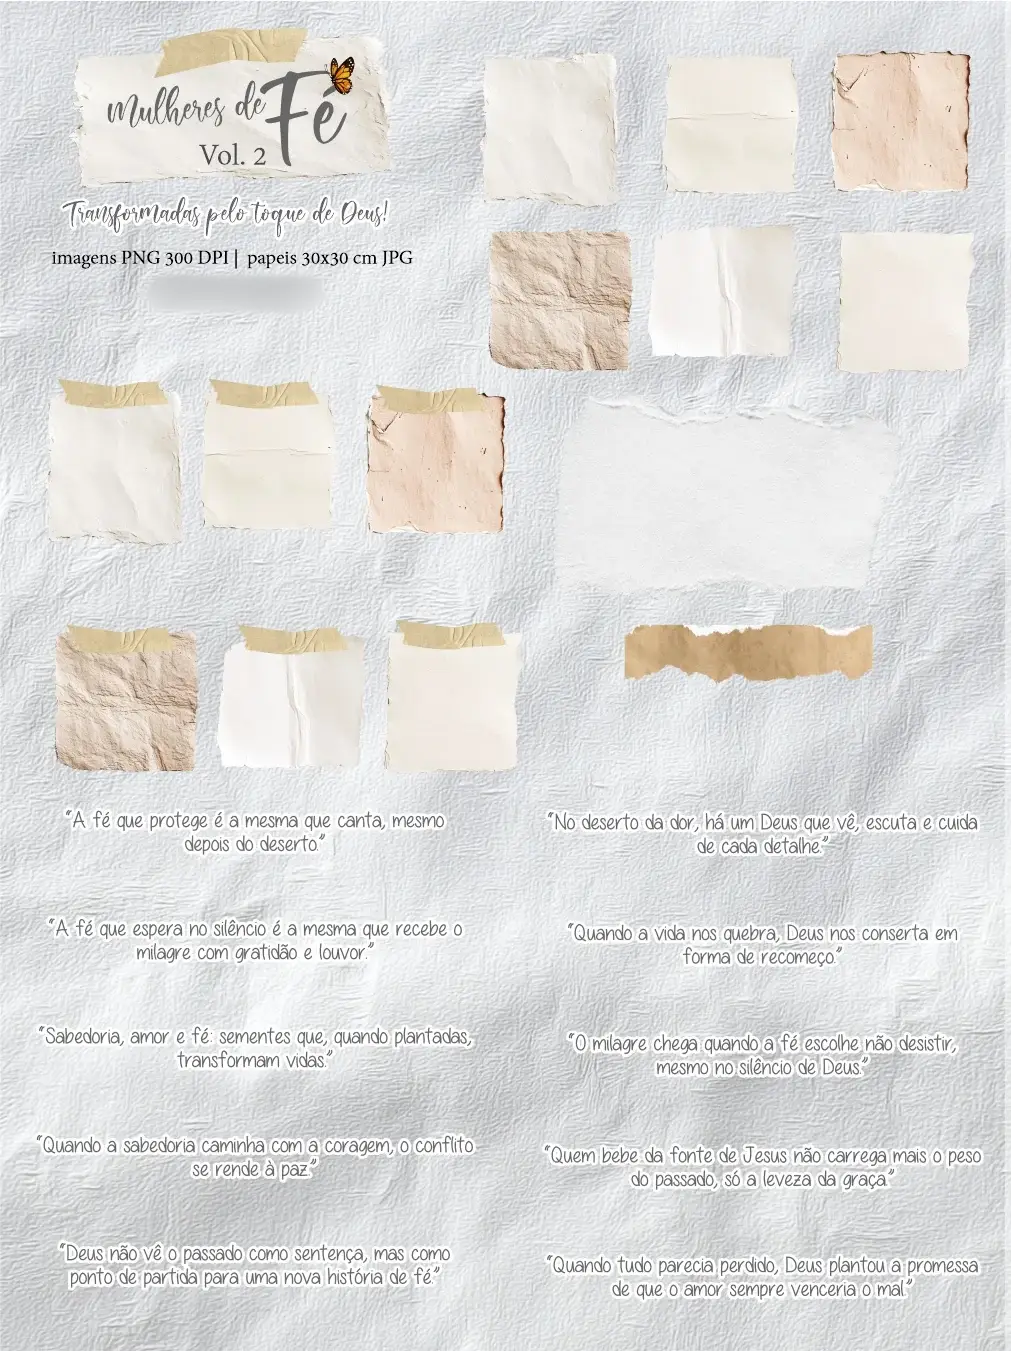 Mulheres de Fé
Vol. 2
Transformadas pelo toque de Deus!
imagens PNG 300 DPI | papeis 30x30 cm JPG
"A fé que protege é a mesma que canta, mesmo
depois do deserto."
"A fé que espera no silêncio é a mesma que recebe o
milagre com gratidão e louvor."
"Sabedoria, amor e fé: sementes que, quando plantadas,
transformam vidas."
"Quando a sabedoria caminha com a coragem, o conflito
se rende à paz."
"Deus não vê o passado como sentença, mas como
ponto de partida para uma nova história de fé."
"No deserto da dor, há um Deus que vê, escuta e cuida
de cada detalhe."
"Quando a vida nos quebra, Deus nos conserta em
forma de recomeço."
"O milagre chega quando a fé escolhe não desistir,
mesmo no silêncio de Deus."
"Quem bebe da fonte de Jesus não carrega mais o peso
do passado, só a leveza da graça."
"Quando tudo parecia perdido, Deus plantou a promessa
de que o amor sempre venceria o mal."